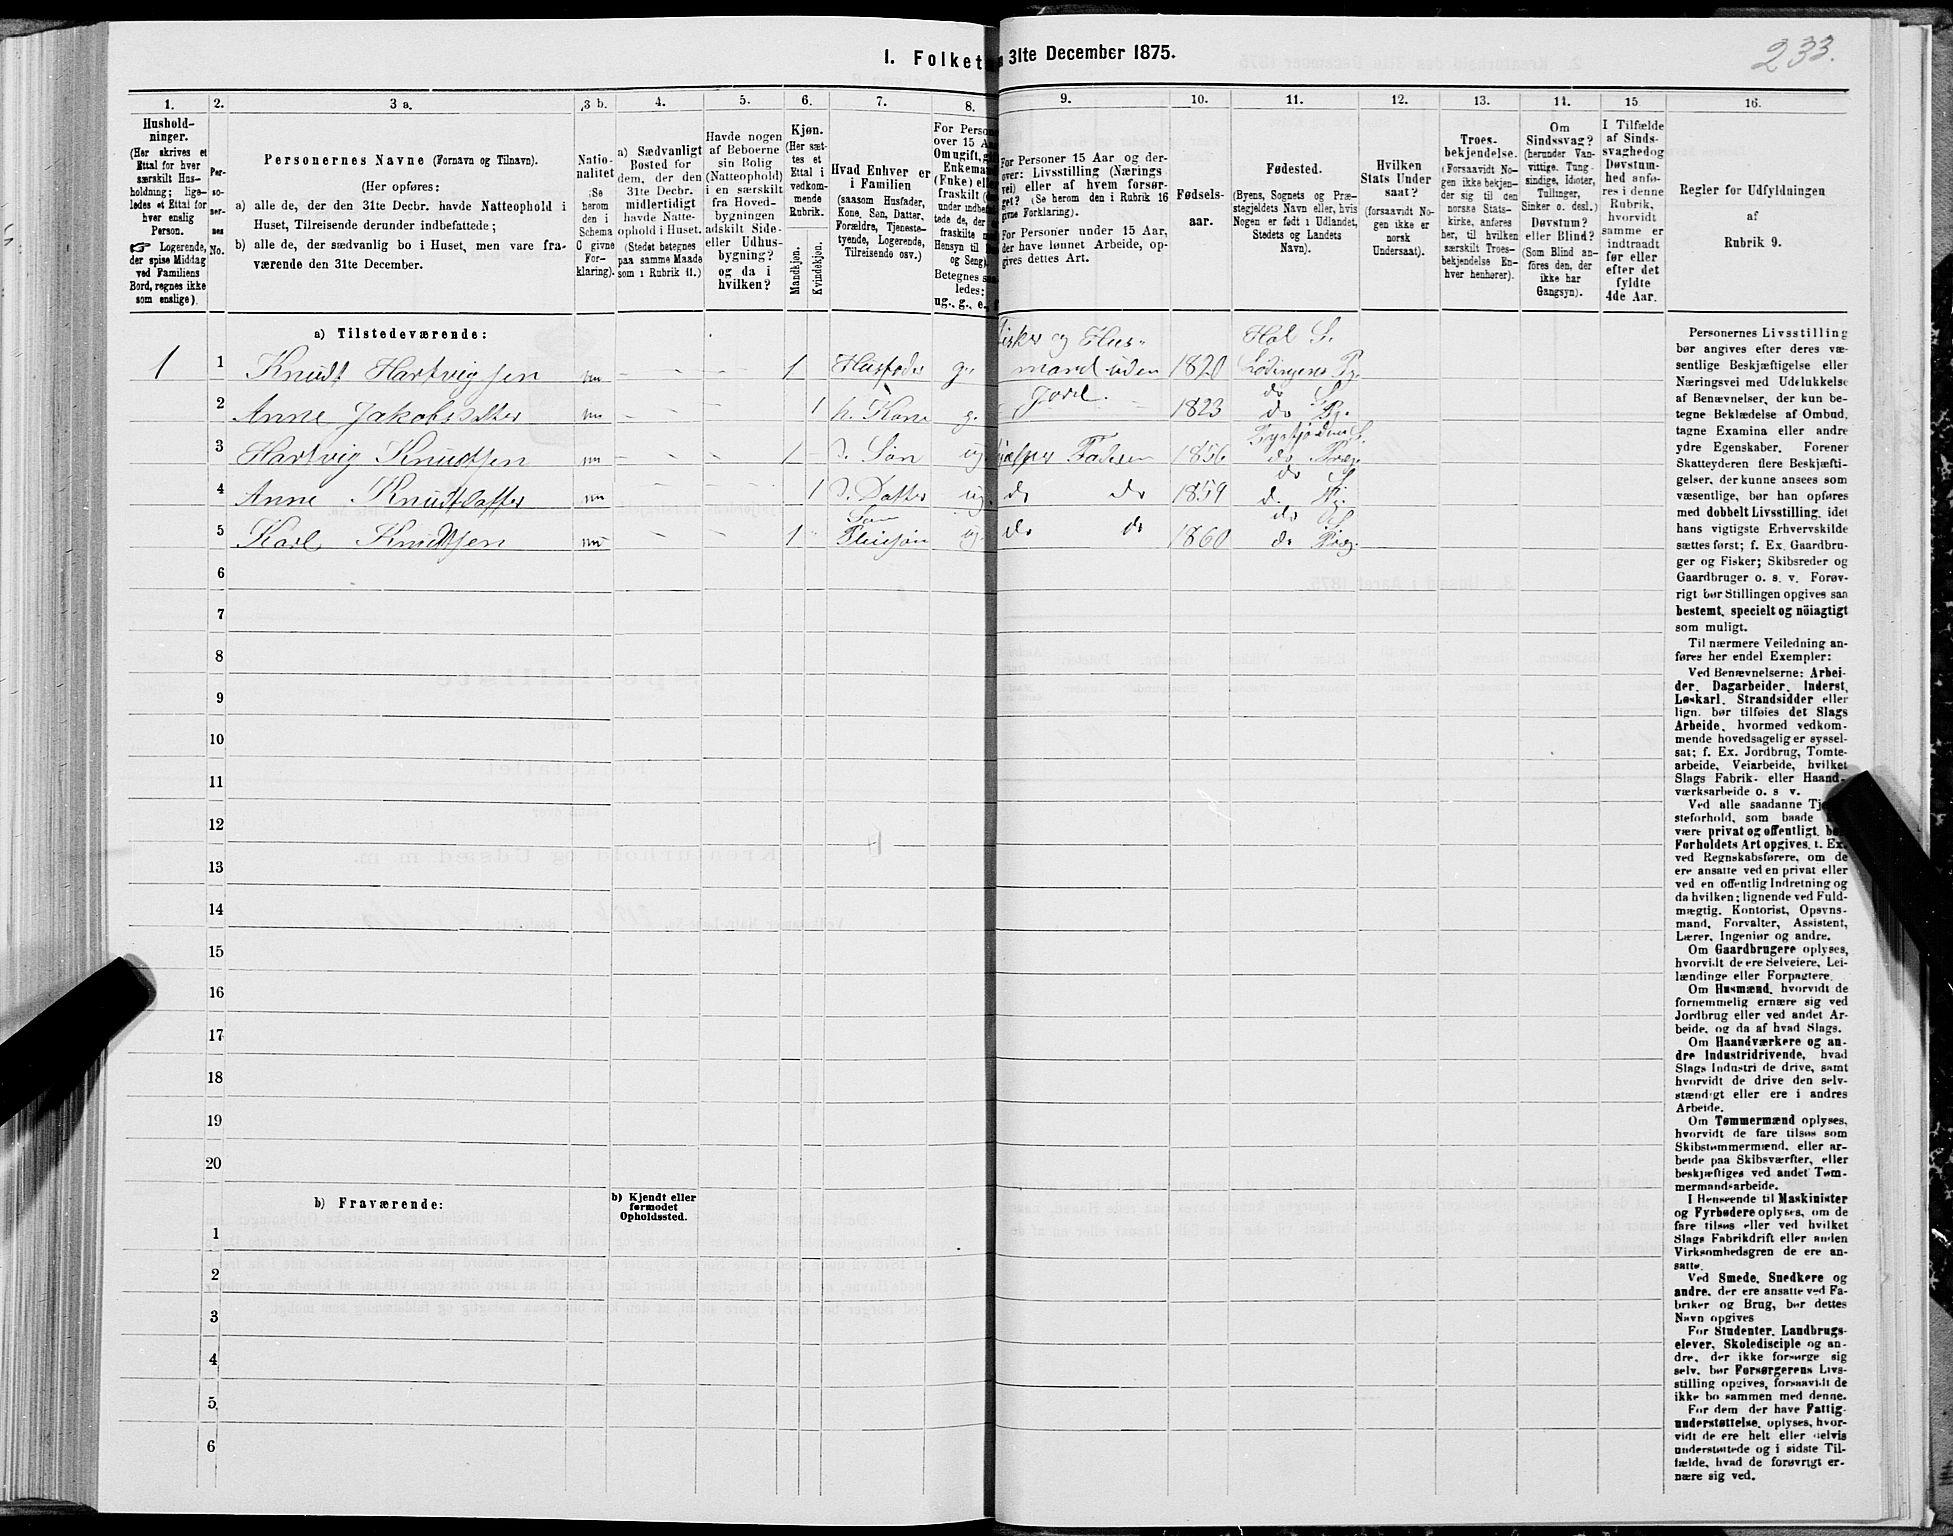 233.
I. Folket 31te December 1875.
1. 2. 3 a. 3 b. 4. 5. 6. 7. 8. 9. 10. 11. 12. 13. 14. 15 16.
Hushold-
ninger.
(Her skrives et
Ettal for hver
særskilt Hus-
holdning; lige-
ledes et Ettal for
hver enslig
Person.
☞ Logerende,
der spise Middag
ved Familiens
Bord, regnes ikke
som enslige).
Per-
so-
ner-
nes
No.
Personernes Navne (Fornavn og Tilnavn).
(Her opføres:
a) alle de, der den 31te Decbr. havde Natteophold i
Huset, Tilreisende derunder indbefattede;
b) alle de, der sædvanlig bo i Huset, men vare fra-
værende den 31te December.
Natio-
nalitet
(Se
herom
den i
Schema
C givne
For-
klaring).
a) Sædvanligt
Bosted for
dem, der den
31te Decbr.
midlertidigt
havde Natte-
ophold i Huset.
(Stedet betegnes
paa samme Maade
som i Rubrik 11.)
Havde nogen
af Beboerne
sin Bolig
(Natteophold)
i en særskilt
fra Hoved-
bygningen
adskilt Side-
eller Udhus-
bygning?
og da i
hvilken?
Kjøn.
(Her sæt-
tes et
Ettal i
vedkom-
mende
Rubrik.
Mandkjøn.
Kvindekjøn.
Hvad Enhver er
i Familien
(saasom Husfader,
Kone, Søn, Datter,
Forældre, Tjeneste-
tyende, Logerende,
Tilreisende osv.)
For Person
over 15 Aar
Om ugift, gi
Enkema
(Enke) ell
fraskilt
under indbefat-
tede de, der
fraskilte
Hensyn til
og Seng).
Betegnes saa
ledes:
ug., g., e.,
For Personer 15 Aar og der-
over: Livsstilling (Nærings
vei) eller af hvem forsør-
get? (Se herom den i Rubrik 16
givne Forklaring).
For Personer under 15 Aar,
der have lønnet Arbeide, op-
gives dettes Art.
Fødsels-
aar.
Fødested.
(Byens, Sognets og Præ-
stegjeldets Navn eller, hvis
Nogen er født i Udlandet,
Stedets og Landets
Navn).
Hvilken
Stats Under
saat?
(forsaavidt No-
gen ikke er
norsk
Undersaat).
Troes-
bekjendelse.
(Forsaavidt No-
gen ikke bekjen-
der sig til den
norske Stats-
kirke, anføres
her, til hvilken
særskilt Troes-
bekjendelse En-
hver henhører).
Om
Sindssvag?
(herunder Van-
vittige, Tung-
sindige, Idioter,
Tullinger,
Sinker o. desl.)
Døvstum?
eller Blind?
(Som Blind an-
føres den, der
ikke har
Gangsyn).
I Tilfælde
af Sinds-
svaghed og
Døvstum-
hed anfø-
res i denne
Rubrik,
hvorvidt
samme er
indtraadt
før eller
efter det
fyldte
4de Aar.
Regler for Udfyldningen
af
Rubrik 9.
a) Tilstedeværende:
1 1 Knudt Hartvigsen nn – – 1 Husfader g. Fisker og Hus-mand uden Jord. 1820 Hol S. Lødingens Pg.
2 Anne Jakobsdatter nn – – 1 h. Kone g. 1823 do S. do Pg.
3 Hartvig Knudtsen nn – – 1 d. Søn ug. Hjelper Faderen 1856 Tysfjordens S. do Præg.
4 Anne Knudtsdatter nn – – 1 d. Datter ug. do do 1859 do S. do Pg.
5 Karl Knudtsen nn – – 1 Søn Pleiesøn ug. do do 1860 do S. do Præg.
6
7
8
9
10
11
12
13
14
15
16
17
18
19
20
b) Fraværende:
b) Kjendt eller
formodet
Opholdssted.
1
2
3
4
5
6
Personernes Livsstilling
bør angives efter deres væ-
sentlige Beskjæftigelse eller
Næringsvei med Udelukkelse
af Benævnelser, der kun be-
tegne Beklædelse af Ombud,
tagne Examina eller andre
ydre Egenskaber. Forener
Skatteyderen flere Beskjæfti-
gelser, der kunne ansees som
væsentlige, bør han opføres
med dobbelt Livsstilling, idet
hans vigtigste Erhvervskilde
sættes først; f. Ex. Gaardbru-
ger og Fisker; Skibsreder og
Gaardbruger o. s. v. Forøv-
rigt bør Stillingen opgives saa
bestemt, specielt og nöiagtigt
som muligt.
Til nærmere Veiledning an-
føres her endel Exempler:
Ved Benævnelserne: Arbei-
der, Dagarbeider, Inderst,
Løskarl, Strandsidder eller
lign. bør tilføies det Slags
Arbeide, hvormed vedkom-
mende hovedsagelig er syssel-
sat; f. Ex. Jordbrug, Tomte-
arbeide, Veiarbeide, hvilket
Slags Fabrik- eller Haand-
værksarbeide o. s v.
Ved alle saadanne Tj
steforhold, som baade
være privat og offentligt, bø
Forholdets Art opgives, t. Ex.
ved Regnskabsførere, om de
ere ansatte ved en privat eller
ved en offentlig Indretning og
da hvilken; lignende ved Fuld-
mægtig, Kontorist, Opsyns-
mand, Forvalter, Assistent,
Lærer, Ingeniør og andre.
Om Gaardbrugere oplyses,
hvorvidt de ere Selveiere, Lei-
lændinge eller Forpagtere.
Om Husmænd, hvorvidt de
fornemmelig ernære sig ved
Jordbrug eller ved andet Ar-
beide, og da af hvad Slags.
Om Haandværkere og an-
dre Industridrivende, hvad
Slags Industri de drive, samt
hvorvidt de drive den selv-
stændigt eller ere i andres
Arbeide.
Om Tømmermænd oplyses,
hvorvidt de fare tilsøs som
Skibstømmermænd, eller ar-
beide paa Skibsværfter, eller
beskjæftiges ved andet Tøm-
mermandsarbeide.
I Henseende til Maskinister
og Fyrbødere oplyses, om de
fare tilsøs eller ved hvilket
Slags Fabrikdrift eller anden
Virksomhedsgren de ere an-
satte.
Ved Smede, Snedkere og
andre, der ere ansatte ved Fa-
briker og Brug, bør dettes
Navn opgives
For Studenter, Landbrugs-
elever, Skoledisciple og an-
dre, der ikke forsørge sig
selv, bør Forsørgerens Livs-
stilling opgives, forsaavidt de
ikke bo sammen med denne.
For dem der have Fattig-
understøttelse, oplyses, hvor-
vidt de ere helt eller delvis
understøttede og i sidste Til-
fælde, hvad de forøvrigt er-
nære sig ved.